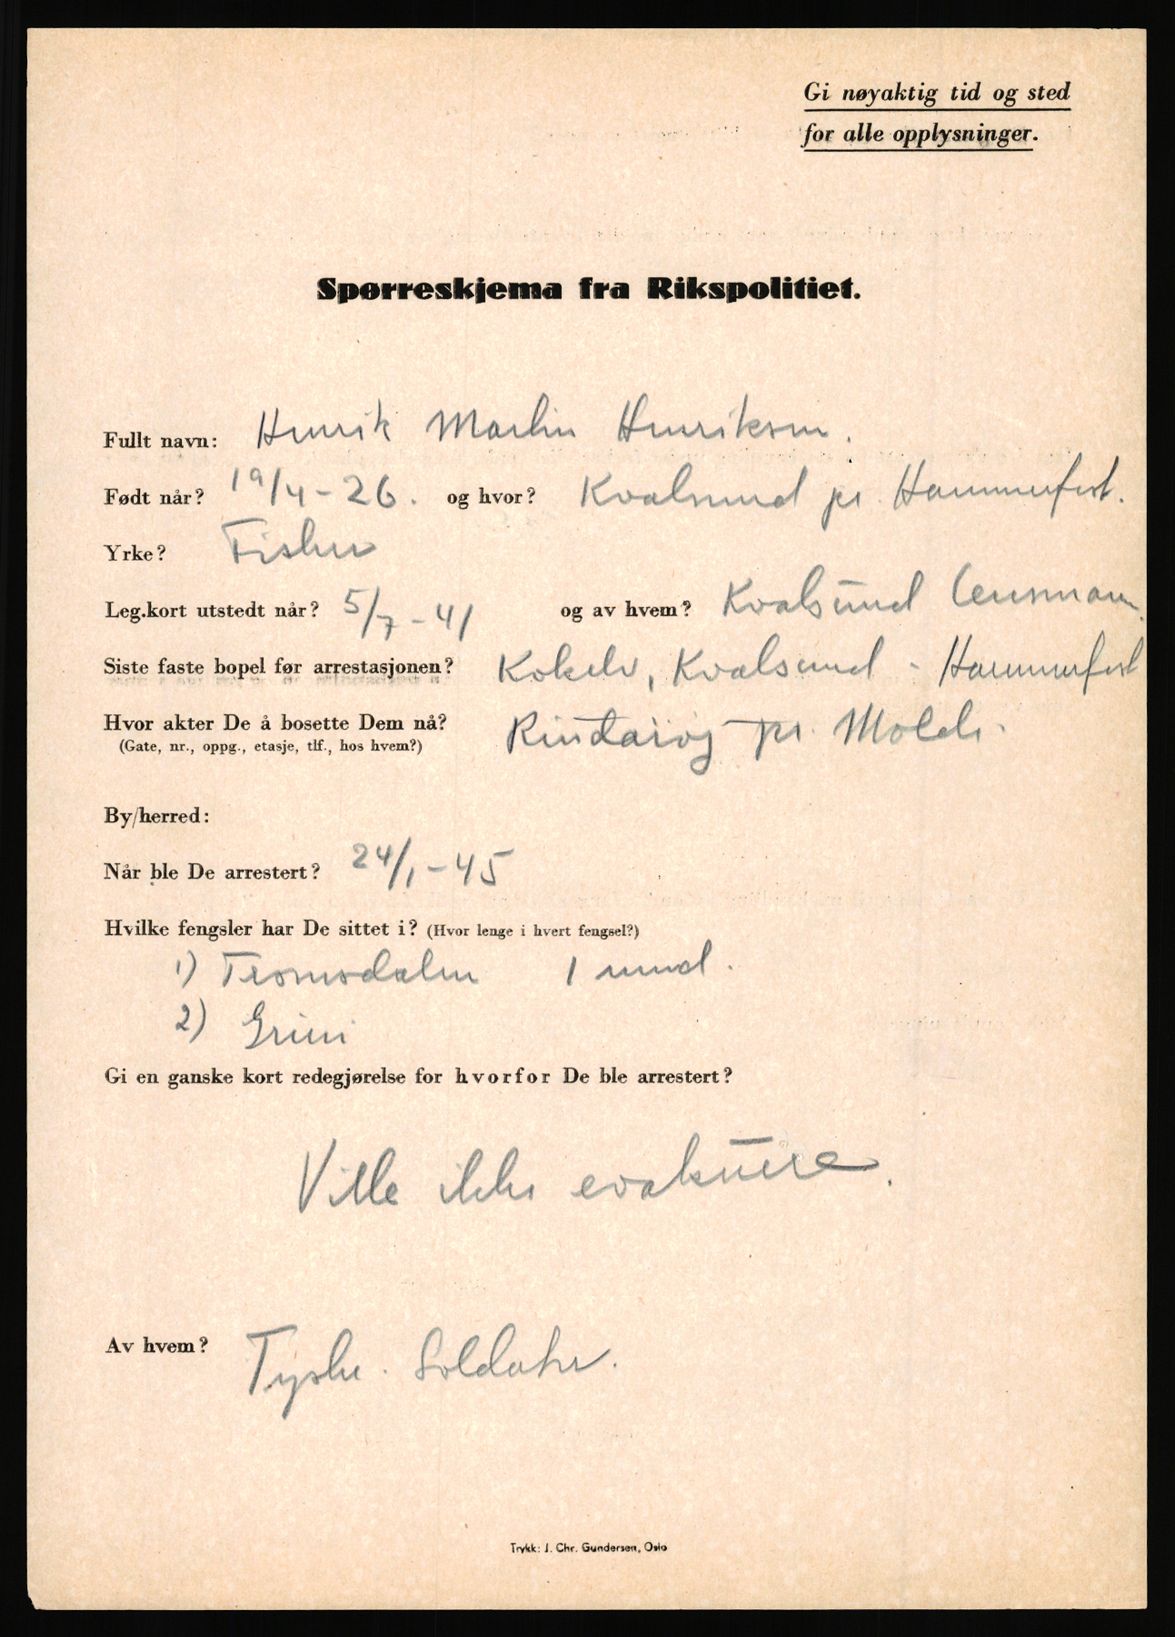 Gi nøyaktig tid og sted
for alle opplysninger.
Spørreskjema fra Rikspolitiet.
Fullt navn: Henrik Martin Henriksen.
Født når? 19/4-26. og hvor? Kvalsund pr. Hammerfest.
Yrke? Fisker
Leg.kort utstedt når? 5/7-41 og av hvem? Kvalsund lensmann
Siste faste bopel før arrestasjonen? Kokelv, Kvalsund - Hammerfest
Hvor akter De å bosette Dem nå? pr. Molde.
(Gate, nr., oppg., etasje, tlf., hos hvem?)
By/herred:
Når ble De arrestert? 24/1-45
Hvilke fengsler har De sittet i? (Hvor lenge i hvert fengsel?)
1) Tromsdalen 1 mnd.
2) Grini
Gi en ganske kort redegjørelse for hvorfor De ble arrestert?
Ville ikke evakuere.
Av hvem? Tyske. Soldater.
Trykk: J. Chr. Gundersen, Oslo